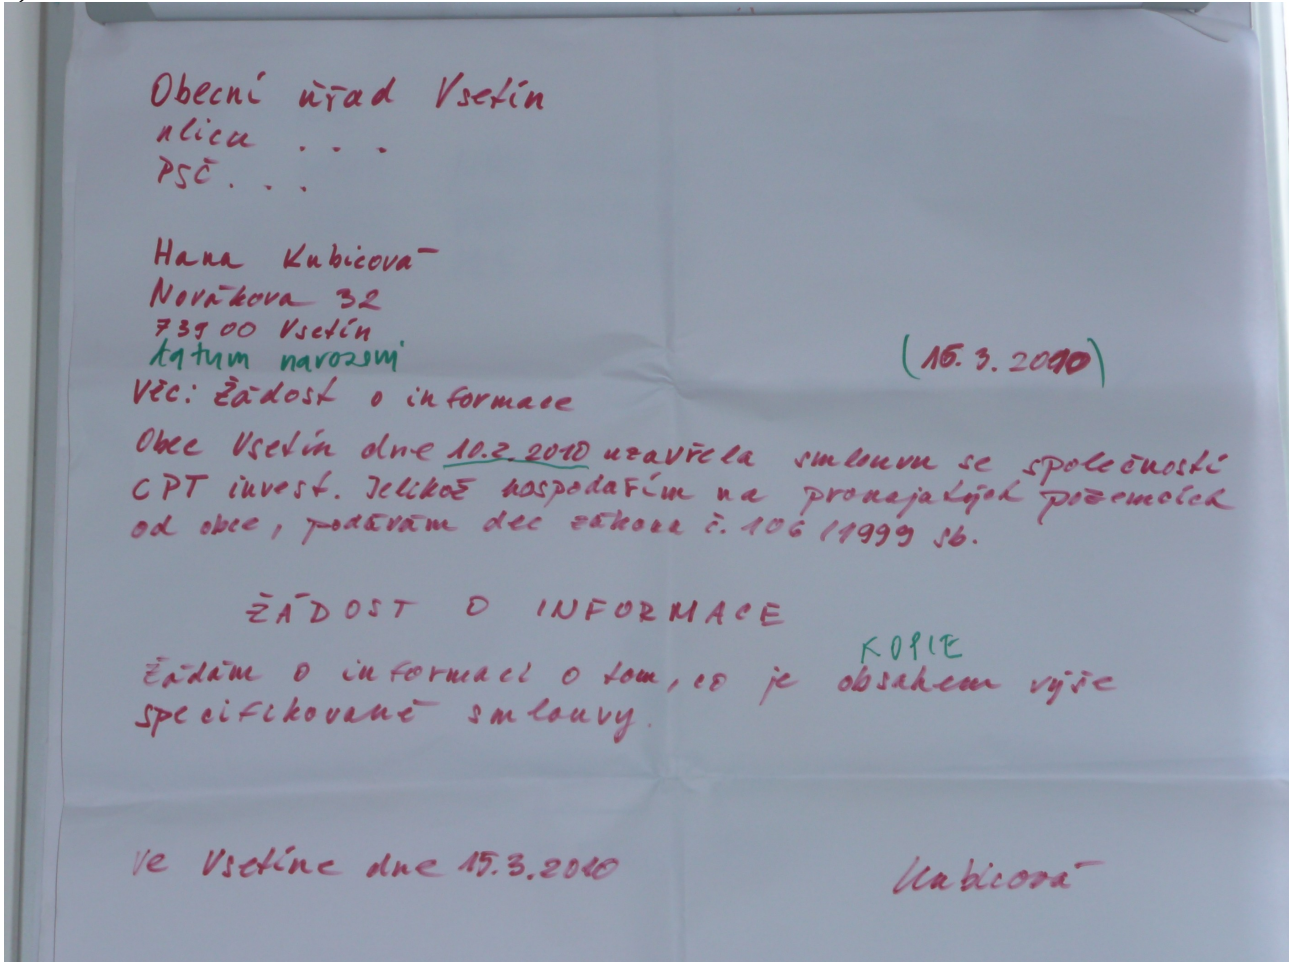 Obecní úřad Vsetín
ulice . . .
PSČ . . .
Hana Kubicová
Novákova 32
73900 Vsetín
datum narození
(15. 3. 2010)
Věc: Žádost o informace
Obec Vsetín dne 10.2.2010 uzavřela smlouvu se společností
CPT invest. Jelikož hospodařím na pronajatých pozemcích
od obce, podávám dle zákona č. 106/1999 sb.
ŽÁDOST O INFORMACE
KOPIE
Žádám o informaci o tom, co je obsahem výše
specifikované smlouvy.
Ve Vsetíne dne 15.3.2010
Kubicová